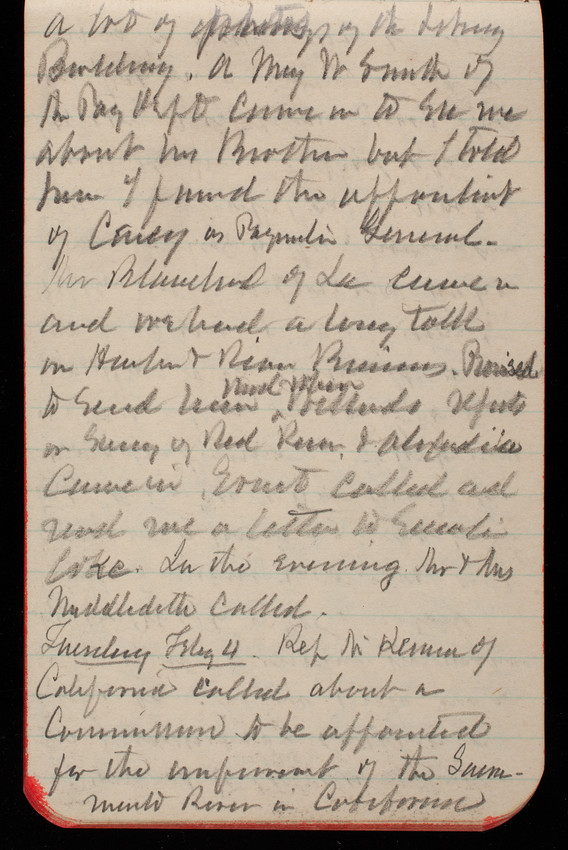 a lot of photos of the Library
Building. A Maj W Smith of
the Pay Dept came in to see me
about his Brother but I told
him I favored the appointment
of Carey as Paymaster General.
Mr Blanchard of La came in
and we had a long talk
on Harbor & River Business. Promised
to send him
on Survey of Red River &
Came in. Ernst called and
read me a letter to Senator
In the evening Mr & Mrs
Middledith called.
Tuesday Feby 4. Rep McKenna of
California called about a
Commission to be appointed
for the improvement of the Sacra-
mento River in California